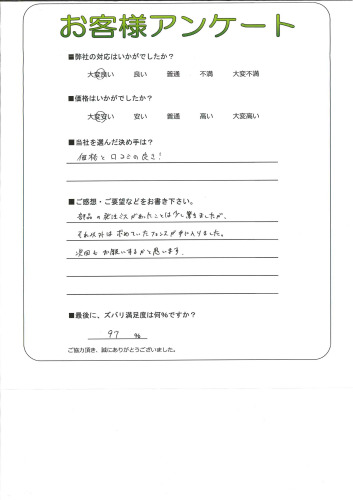 お客様アンケート
■弊社の対応はいかがでしたか?
大変良い 良い 普通 不満 大変不満
■価格はいかがでしたか?
大変安い 安い 普通 高い 大変高い
■当社を選んだ決め手は?
価格と口コミの良さ!
■ご感想・ご要望などをお書き下さい。
部品の発注ミスがあったことは少し驚きましたが、
それ以外は求めていたフェンスが手に入りました。
次回もお願いするかと思います。
■最後に、ズバリ満足度は何%ですか?
97 %
ご協力頂き、誠にありがとうございました。